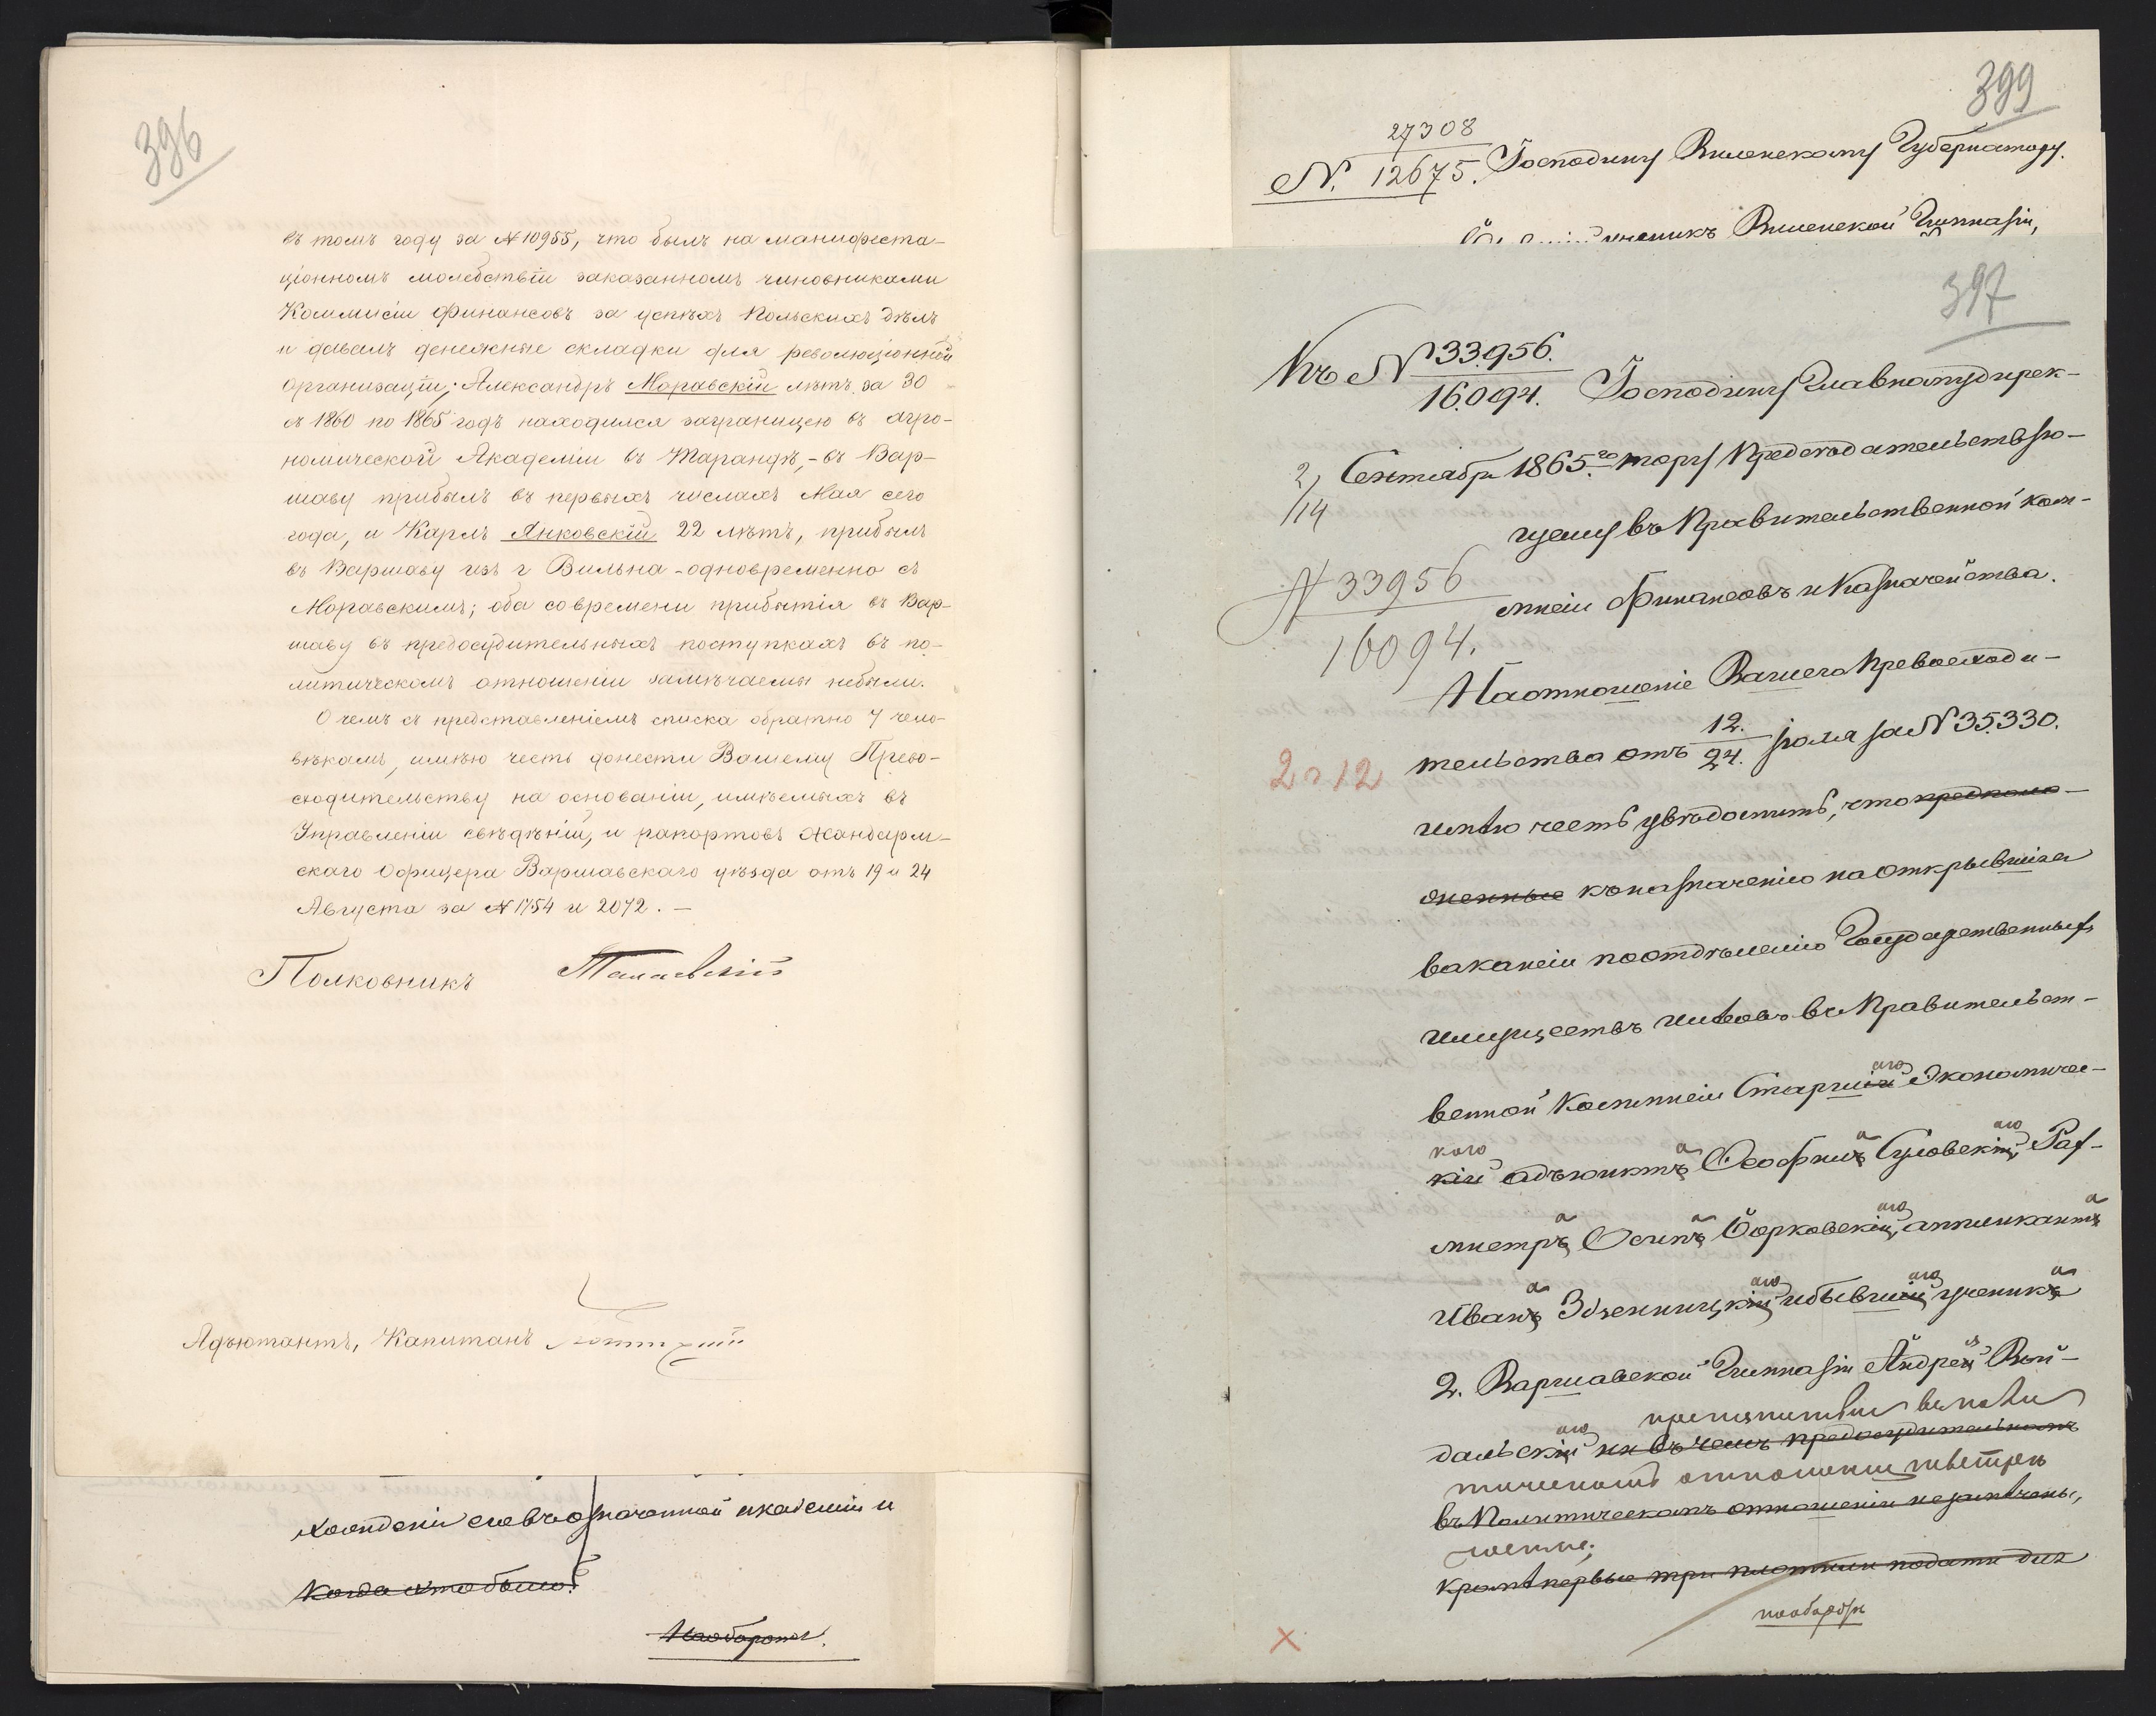 396
въ томъ году за № 10955, что былъ на манифеста-
ціонномъ молебствіи заказанномъ чиновниками
Коммисіи Финансовъ за успѣхъ Польскихъ дѣлъ
и давалъ денежные складки для революціонной
организаціи; Александръ Моравскій лѣтъ за 30
съ 1860 по 1865 годъ находился заграницею въ Агро-
номической Академіи въ Тарандѣ, - въ Вар-
шаву прибылъ въ первыхъ числахъ Мая сего
года, и Карлъ Янковскій 22 лѣтъ, прибылъ
въ Варшаву изъ г Вильна - одновременно съ
Моравскимъ; оба современи прибытія въ Вар-
шаву въ предосудительныхъ поступкахъ въ по-
литическомъ отношеніи замѣчаемы небыли.
О чемъ съ представленіемъ списка обратно 7 чело-
вѣкамъ, имѣю честь донести Вашему Прево-
сходительству на основаніи, имѣемыхъ въ
Управленіи свѣдѣній, и рапортовъ Жандарм-
скаго Офицера Варшавскаго уѣзда отъ 19 и 24
Августа за № 1754 и 2072. -
Полковникъ
Адъютантъ, Капитанъ
академіи и
когда это было?
Наоборотъ.
399
27308
N. 12675. Господину Виленскому Губернатору.
ученикъ Виленской Гимназіи,
397
Къ N 33.956.
16.094. Господину Главномудирек-
2/14 Сентября 1865.го тору Предсѣдательствую-
щему въ Правительственной Ком-
N 33956
16094.
мисіи Финансовъ и Казначейства.
На отношеніе Вашего Превосходи-
тельства отъ 12./24. Іюля за N 35.330.
2 а 12
имѣю честь увѣдомить, что предполо-
женные къ назначенію на открывшіяся
вакансіи по отдѣленію Государственныхъ
имуществъ и лѣсовъ въ Правительст-
венной Коммисіи Старшій аго Экономичес-
каго
кій адъюнктъ а Ѳеофилъ а Суловскій аго, Раз-
мистръ а Осипъ а Борковскій аго, аппликантъ а
Иванъ а Здзенницкій аго и бывшій аго ученикъ а
2. Варшавской Гимназіи Андрей я Вой-
препятствія въ поли
дальскій аго ни въ чемъ предосудительномъ
тическомъ отношеніи
въ Политическомъ отношеніи не замѣчены,
кромѣ первые три платили подати для
наоборотъ